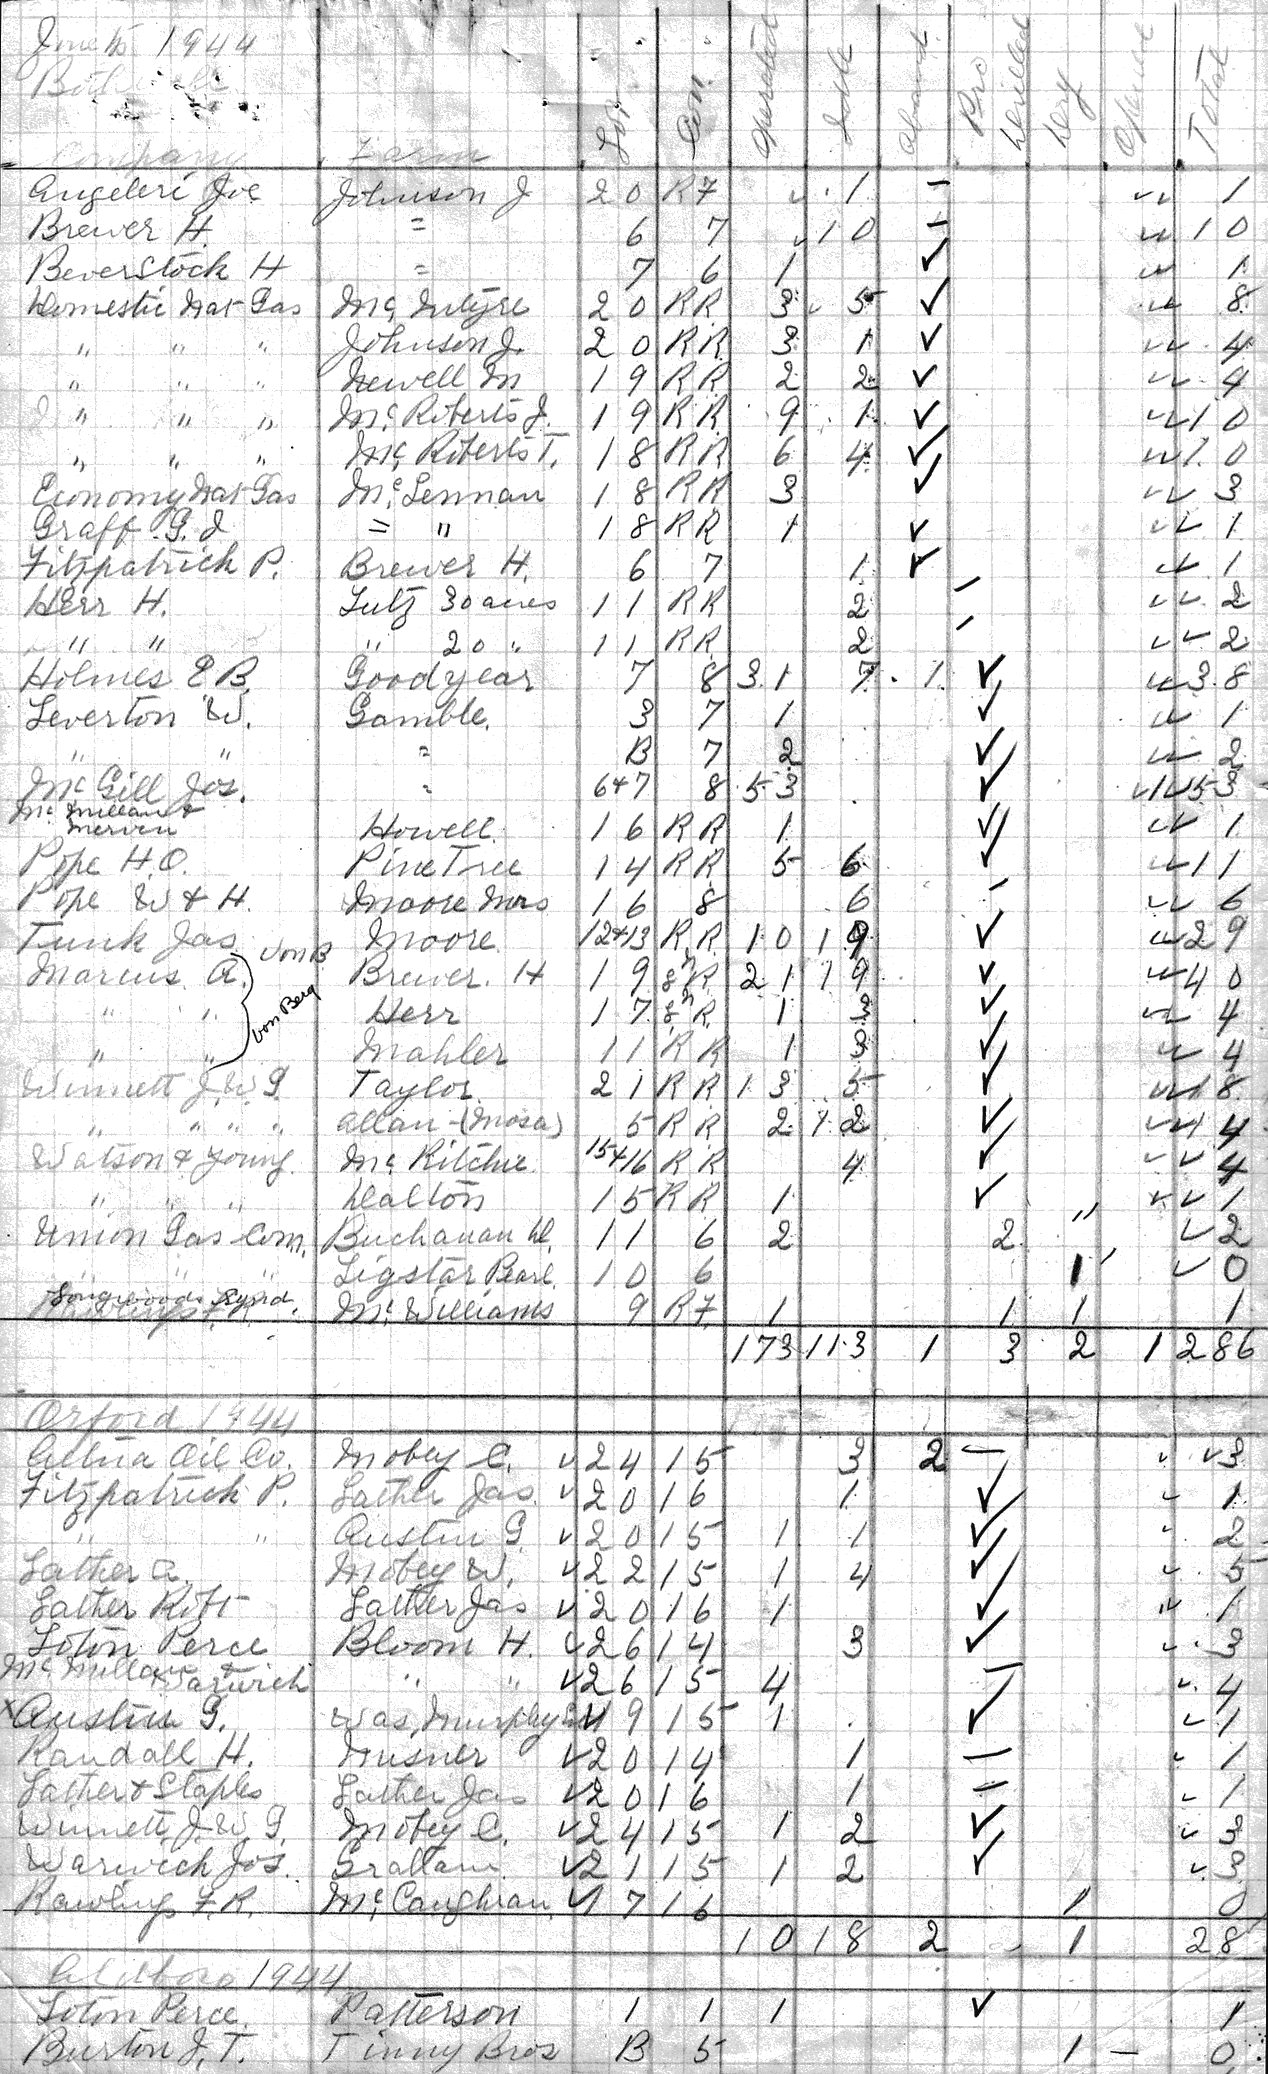 June 15 1944
Company Farm Lot Con. Operated Idle Aband. Pro Drilled Dry Opened Total
Angeleri Joe Johnson J 20 R7 ✓ 1 – ✓✓ 1
Brewer H. = 6 7 ✓ 10 – ✓✓ 10
Beverstock H = 7 6 1 ✓ ✓✓ 1
Domestic Nat Gas Mc Intyre 20 RR 3 5 ✓ ✓✓ 8
" " " Johnson J. 20 RR 3 1 ✓ ✓✓ 4
" " " Newell M 19 RR 2 2 ✓ ✓✓ 4
" " " Mc Roberts J. 19 RR 9 1 ✓ ✓✓ 10
" " " Mc Roberts T. 18 RR 6 4 ✓ ✓✓ 10
Economy Nat Gas Mc Lennan 18 RR 3 ✓ ✓✓ 3
Graff G. J = " 18 RR 1 ✓ ✓✓ 1
Fitzpatrick P. Brewer H. 6 7 1 ✓ ✓✓ 1
Herr H. Lutz 30 acres 11 RR 2 – ✓✓ 2
" " " 20 " 11 RR 2 – ✓✓ 2
Holmes E B. Goodyear 7 8 31 7 1 ✓ ✓✓ 38
Leverton W. Gamble. 3 7 1 ✓ ✓✓ 1
" " = B 7 2 ✓ ✓✓ 2
Mc Gill Jos. " 6+7 8 53 ✓ ✓1✓ 53
Mc Millan & Merwin Howell. 16 RR 1 ✓ ✓✓ 1
Pope H.O. Pine Tree 14 RR 5 6 ✓ ✓✓ 11
Pope W & H. Moore Mrs 16 8 6 – ✓✓ 6
Tunk Jas. Moore 12+13 RR 10 19 ✓ ✓✓ 29
Marcus A. Von B Brewer. H 19 R 21 19 ✓ ✓✓ 40
" " Von Berg Herr 17 R 1 3 ✓ ✓✓ 4
" " Mahler 11 RR 1 3 ✓ ✓✓ 4
Winnett J. W. G. Taylor 21 RR 13 5 ✓ ✓✓ 18
" " " " Allan – (Mosa) 5 RR 2 2 ✓ ✓✓ 4
Watson & Young Mc Ritchie 15+16 RR 4 ✓ ✓✓ 4
" " " Dalton 15 RR 1 ✓ ✓✓ 1
Union Gas Com. Buchanan D. 11 6 2 2 " ✓ 2
" " " Ligstar Pearl 10 6 1 ✓ 0
Longwoods Synd. Mc Williams 9 R7 1 1 1 1
173 113 1 3 2 1 286
Orford 1944
Aetna Oil Co. Mobey C. ✓ 24 15 3 2 – ✓ ✓ 3
Fitzpatrick P. Lather Jas. ✓ 20 16 1 ✓ ✓ 1
" " Austin G. ✓ 20 15 1 1 ✓ ✓ 2
Lather A. Mobey W. ✓ 22 15 1 4 ✓ ✓ 5
Lather Robt Lather Jas ✓ 20 16 1 ✓ ✓✓ 1
Loton Perce Bloom H. ✓ 26 14 3 ✓ ✓ 3
Mc Millan & Warwick " " ✓ 26 15 4 – ✓ 4
x Austin G. Was Murphy ✓ 19 15 1 ✓ ✓ 1
Randall H. Musner ✓ 20 14 1 – ✓ 1
Lather & Staples Lather Jas ✓ 20 16 1 – ✓ 1
Winnett J. W. G. Mobey C. ✓ 24 15 1 2 ✓ ✓ 3
Warwick Jos. Graham ✓ 21 15 1 2 ✓ ✓ 3
Rawlings F. R. Mc Caughran ✓ 17 16 1 0
10 18 2 1 28
Aldboro 1944
Loton Perce. Patterson 1 1 1 ✓ 1
Burton J. T. Tinny Bros B 5 1 – 0